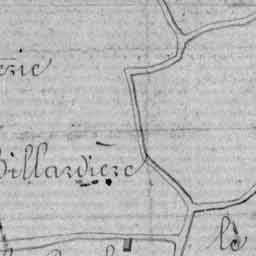 erie
Billardière
le